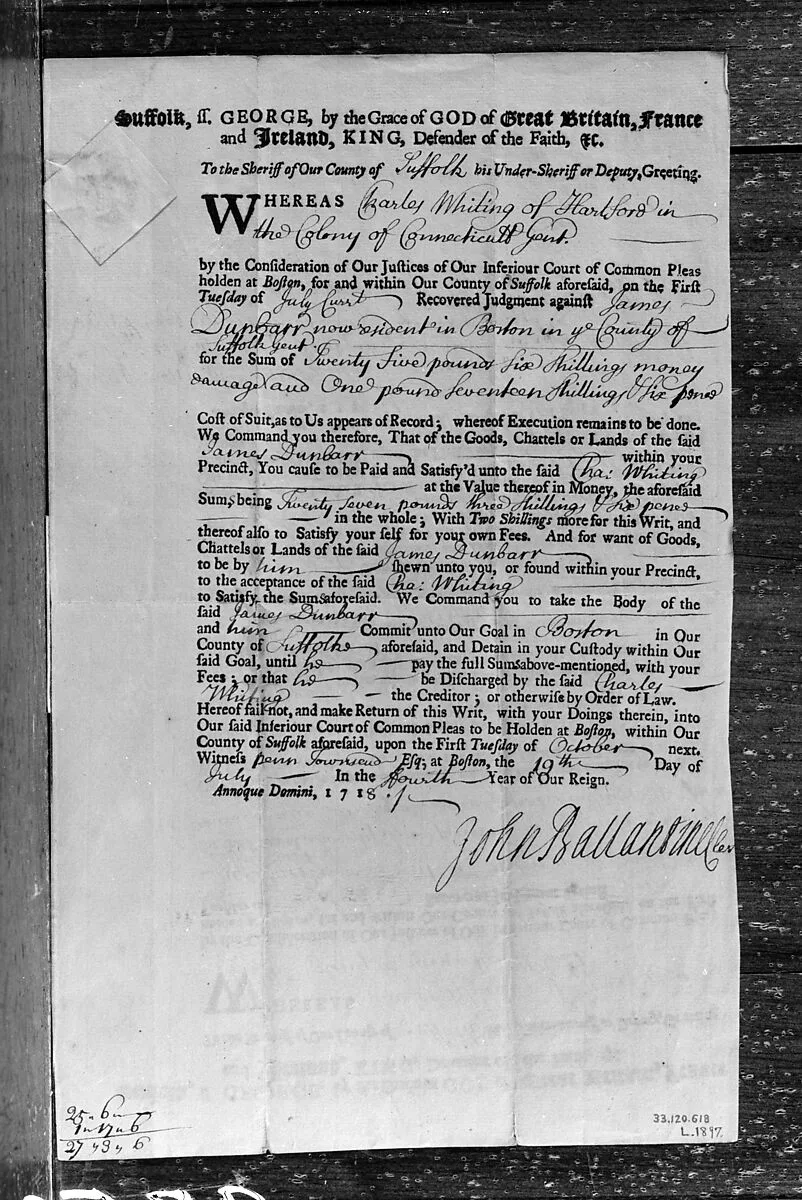 Suffolk, ſſ. GEORGE, by the Grace of GOD of Great Britain, France
and Ireland, KING, Defender of the Faith, &C.
To the Sheriff of Our County of Suffolk his Under-Sheriff or Deputy, Greeting.
WHEREAS Charles Whiting of Hartford in
the Colony of Connecticutt Gent.
by the Conſideration of Our Juſtices of Our Inferiour Court of Common Pleas
holden at Boſton, for and within Our County of Suffolk aforeſaid, on the Firſt
Tueſday of July Curr.t Recovered Judgment againſt James
Dunbarr now resident in Boston in ye County of
Suffolk Gent.
for the Sum of Twenty Five pounds six shillings money
damage and One pound seventeen shillings & six pence
Coſt of Suit, as to Us appears of Record; whereof Execution remains to be done.
We Command you therefore, That of the Goods, Chattels or Lands of the ſaid
James Dunbarr within your
Precinct, You cauſe to be Paid and Satisfy'd unto the ſaid Cha: Whiting
at the Value thereof in Money, the aforeſaid
Sums being Twenty seven pounds three shillings & six pence
in the whole; With Two Shillings more for this Writ, and
thereof alſo to Satisfy your ſelf for your own Fees. And for want of Goods,
Chattels or Lands of the ſaid James Dunbarr
to be by him ſhewn unto you, or found within your Precinct,
to the acceptance of the ſaid Cha: Whiting
to Satisfy the Sums aforeſaid. We Command you to take the Body of the
ſaid James Dunbarr
and him Commit unto Our Goal in Boston in Our
County of Suffolke aforeſaid, and Detain in your Cuſtody within Our
ſaid Goal, until he pay the full Sums above-mentioned, with your
Fees; or that he be Diſcharged by the ſaid Charles
Whiting the Creditor; or otherwiſe by Order of Law.
Hereof fail not, and make Return of this Writ, with your Doings therein, into
Our ſaid Inferiour Court of Common Pleas to be Holden at Boſton, within Our
County of Suffolk aforeſaid, upon the Firſt Tueſday of October next.
Witneſs Penn Townsend Eſq; at Boſton, the 19th Day of
July In the Fourth Year of Our Reign.
Annoque Domini, 1718.
John Ballantine Cler
25 " 6 "
1 " 17 " 6
27 " 3 " 6
33.120.618
L.1897.